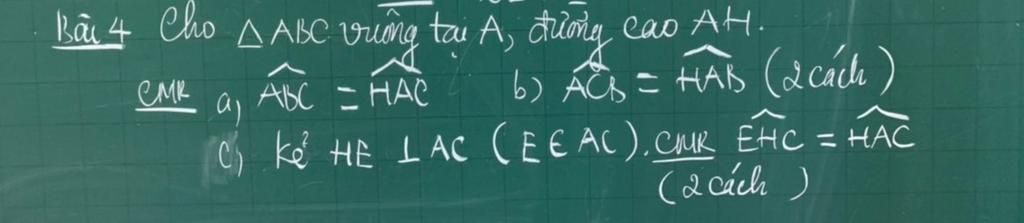 Bài 4 Cho △ABC vuông tại A, đường cao AH.
CMR a, \widehat{ABC} = \widehat{HAC} b) \widehat{ACB} = \widehat{HAB} (2 cách)
c, kẻ HE ⊥ AC (E ∈ AC). CMR \widehat{EHC} = \widehat{HAC}
(2 cách)